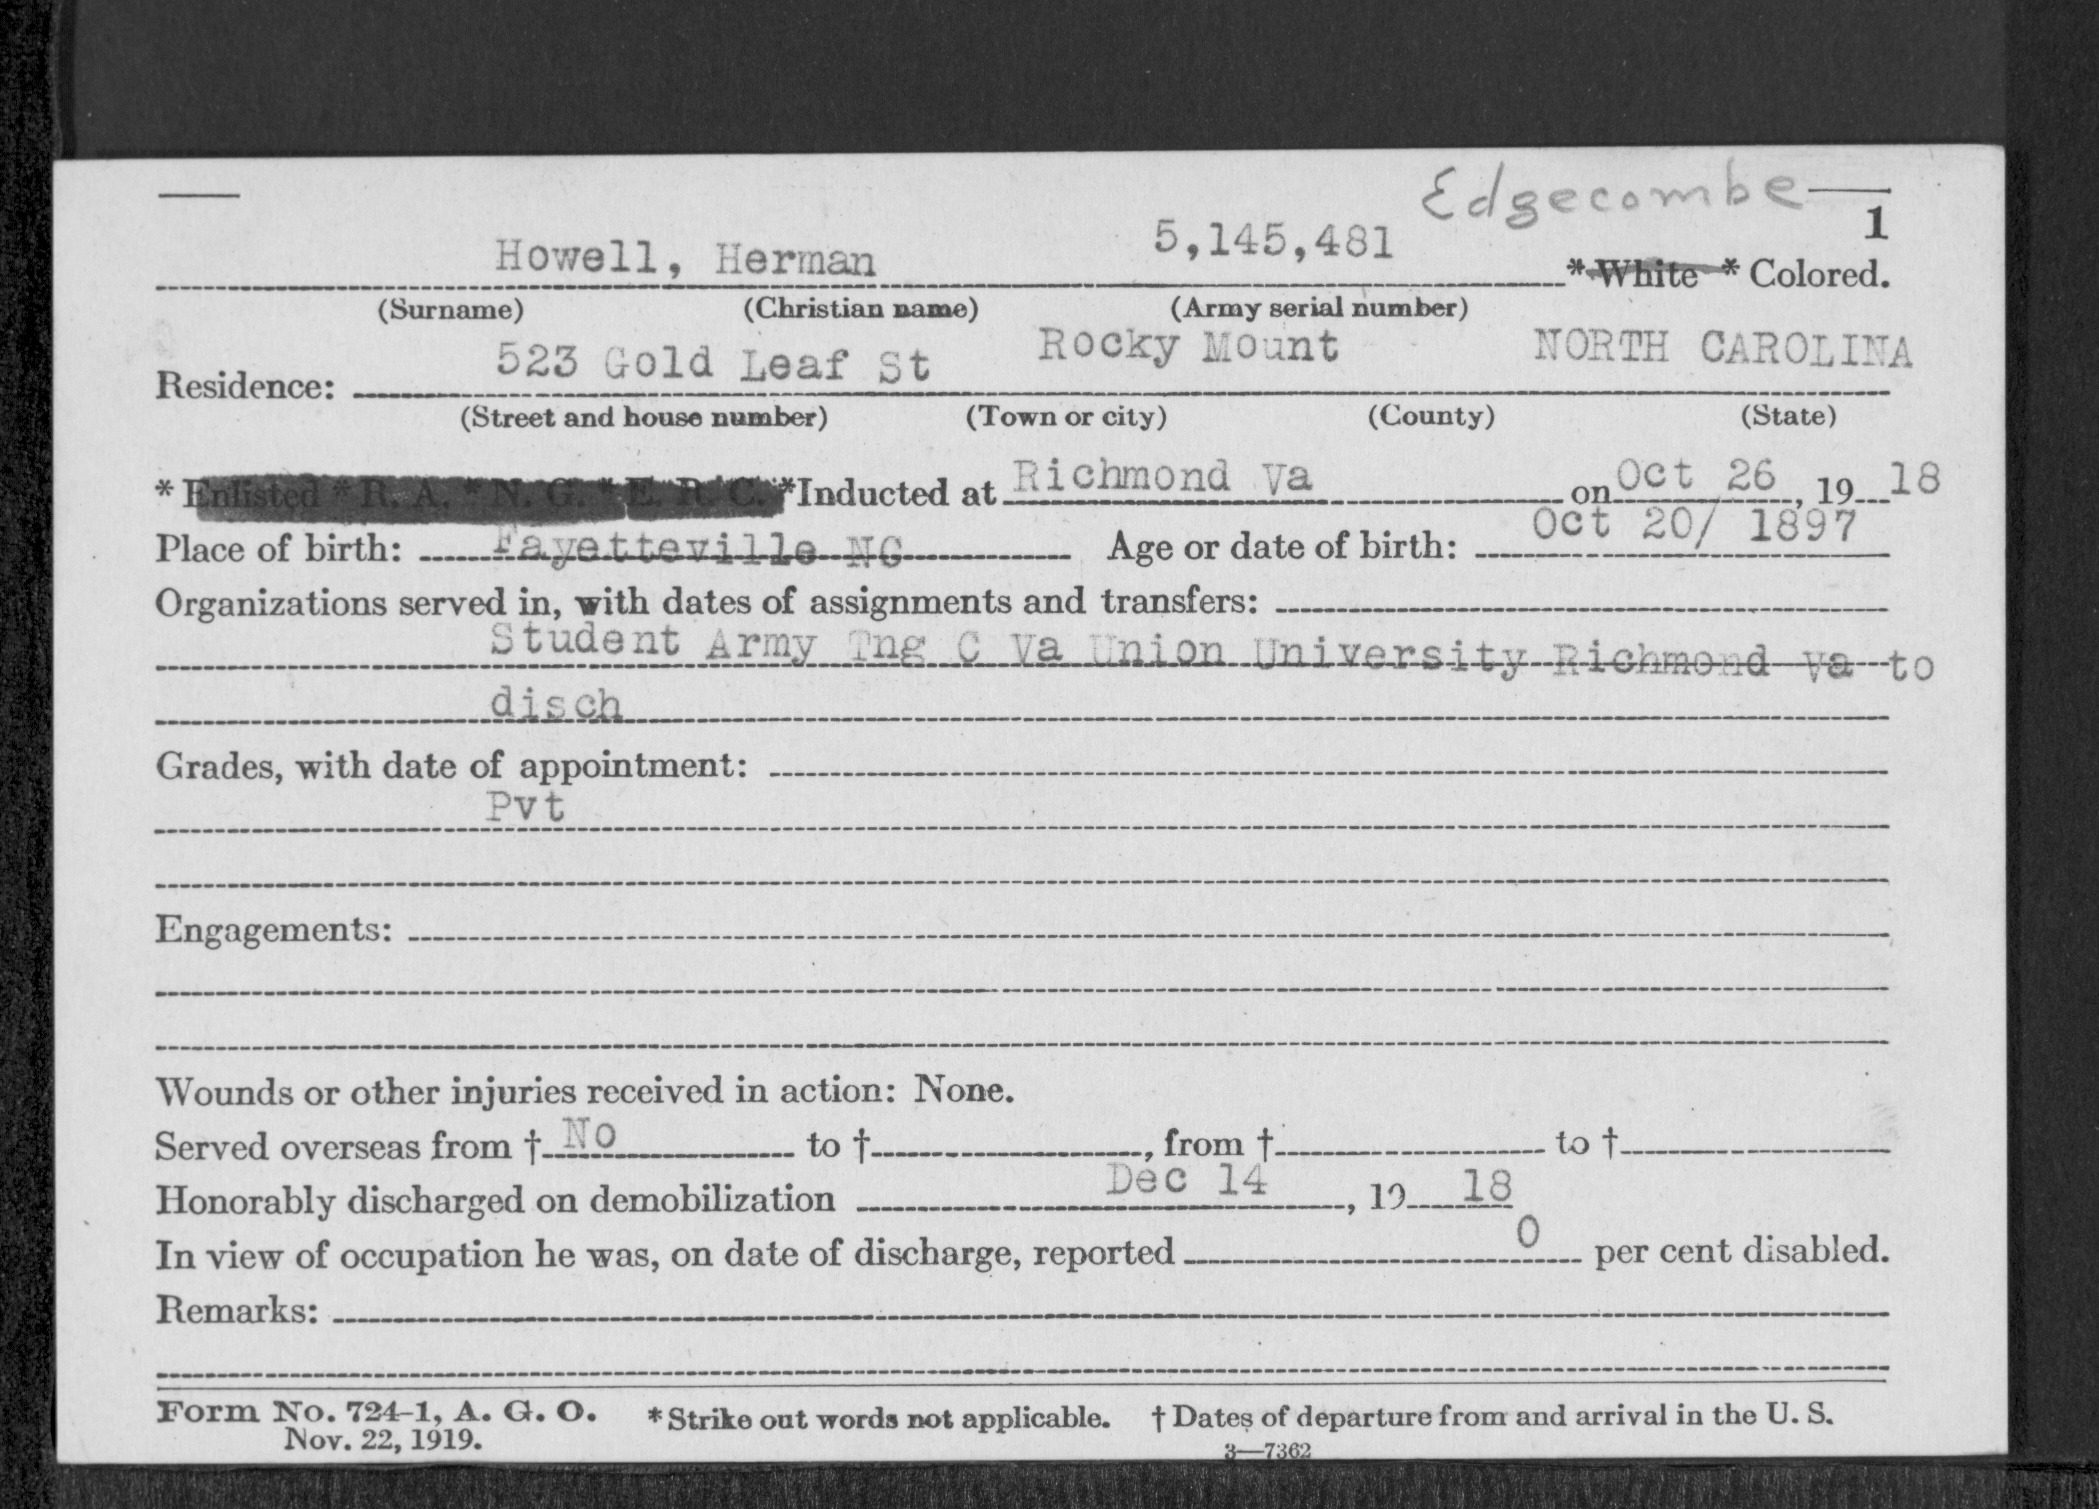 Edgecombe
1
Howell, Herman 5,145,481 *White *Colored.
(Surname) (Christian name) (Army serial number)
Residence: 523 Gold Leaf St Rocky Mount NORTH CAROLINA
(Street and house number) (Town or city) (County) (State)
*Enlisted *R. A. *N. G. *E. R. C. *Inducted at Richmond Va on Oct 26, 1918
Place of birth: Fayetteville NC Age or date of birth: Oct 20/ 1897
Organizations served in, with dates of assignments and transfers:
Student Army Tng C Va Union University Richmond Va to
disch
Grades, with date of appointment:
Pvt
Engagements:
Wounds or other injuries received in action: None.
Served overseas from † No to †, from † to †
Honorably discharged on demobilization Dec 14, 1918
In view of occupation he was, on date of discharge, reported 0 per cent disabled.
Remarks:
Form No. 724-1, A. G. O. *Strike out words not applicable. †Dates of departure from and arrival in the U. S.
Nov. 22, 1919.
3—7362